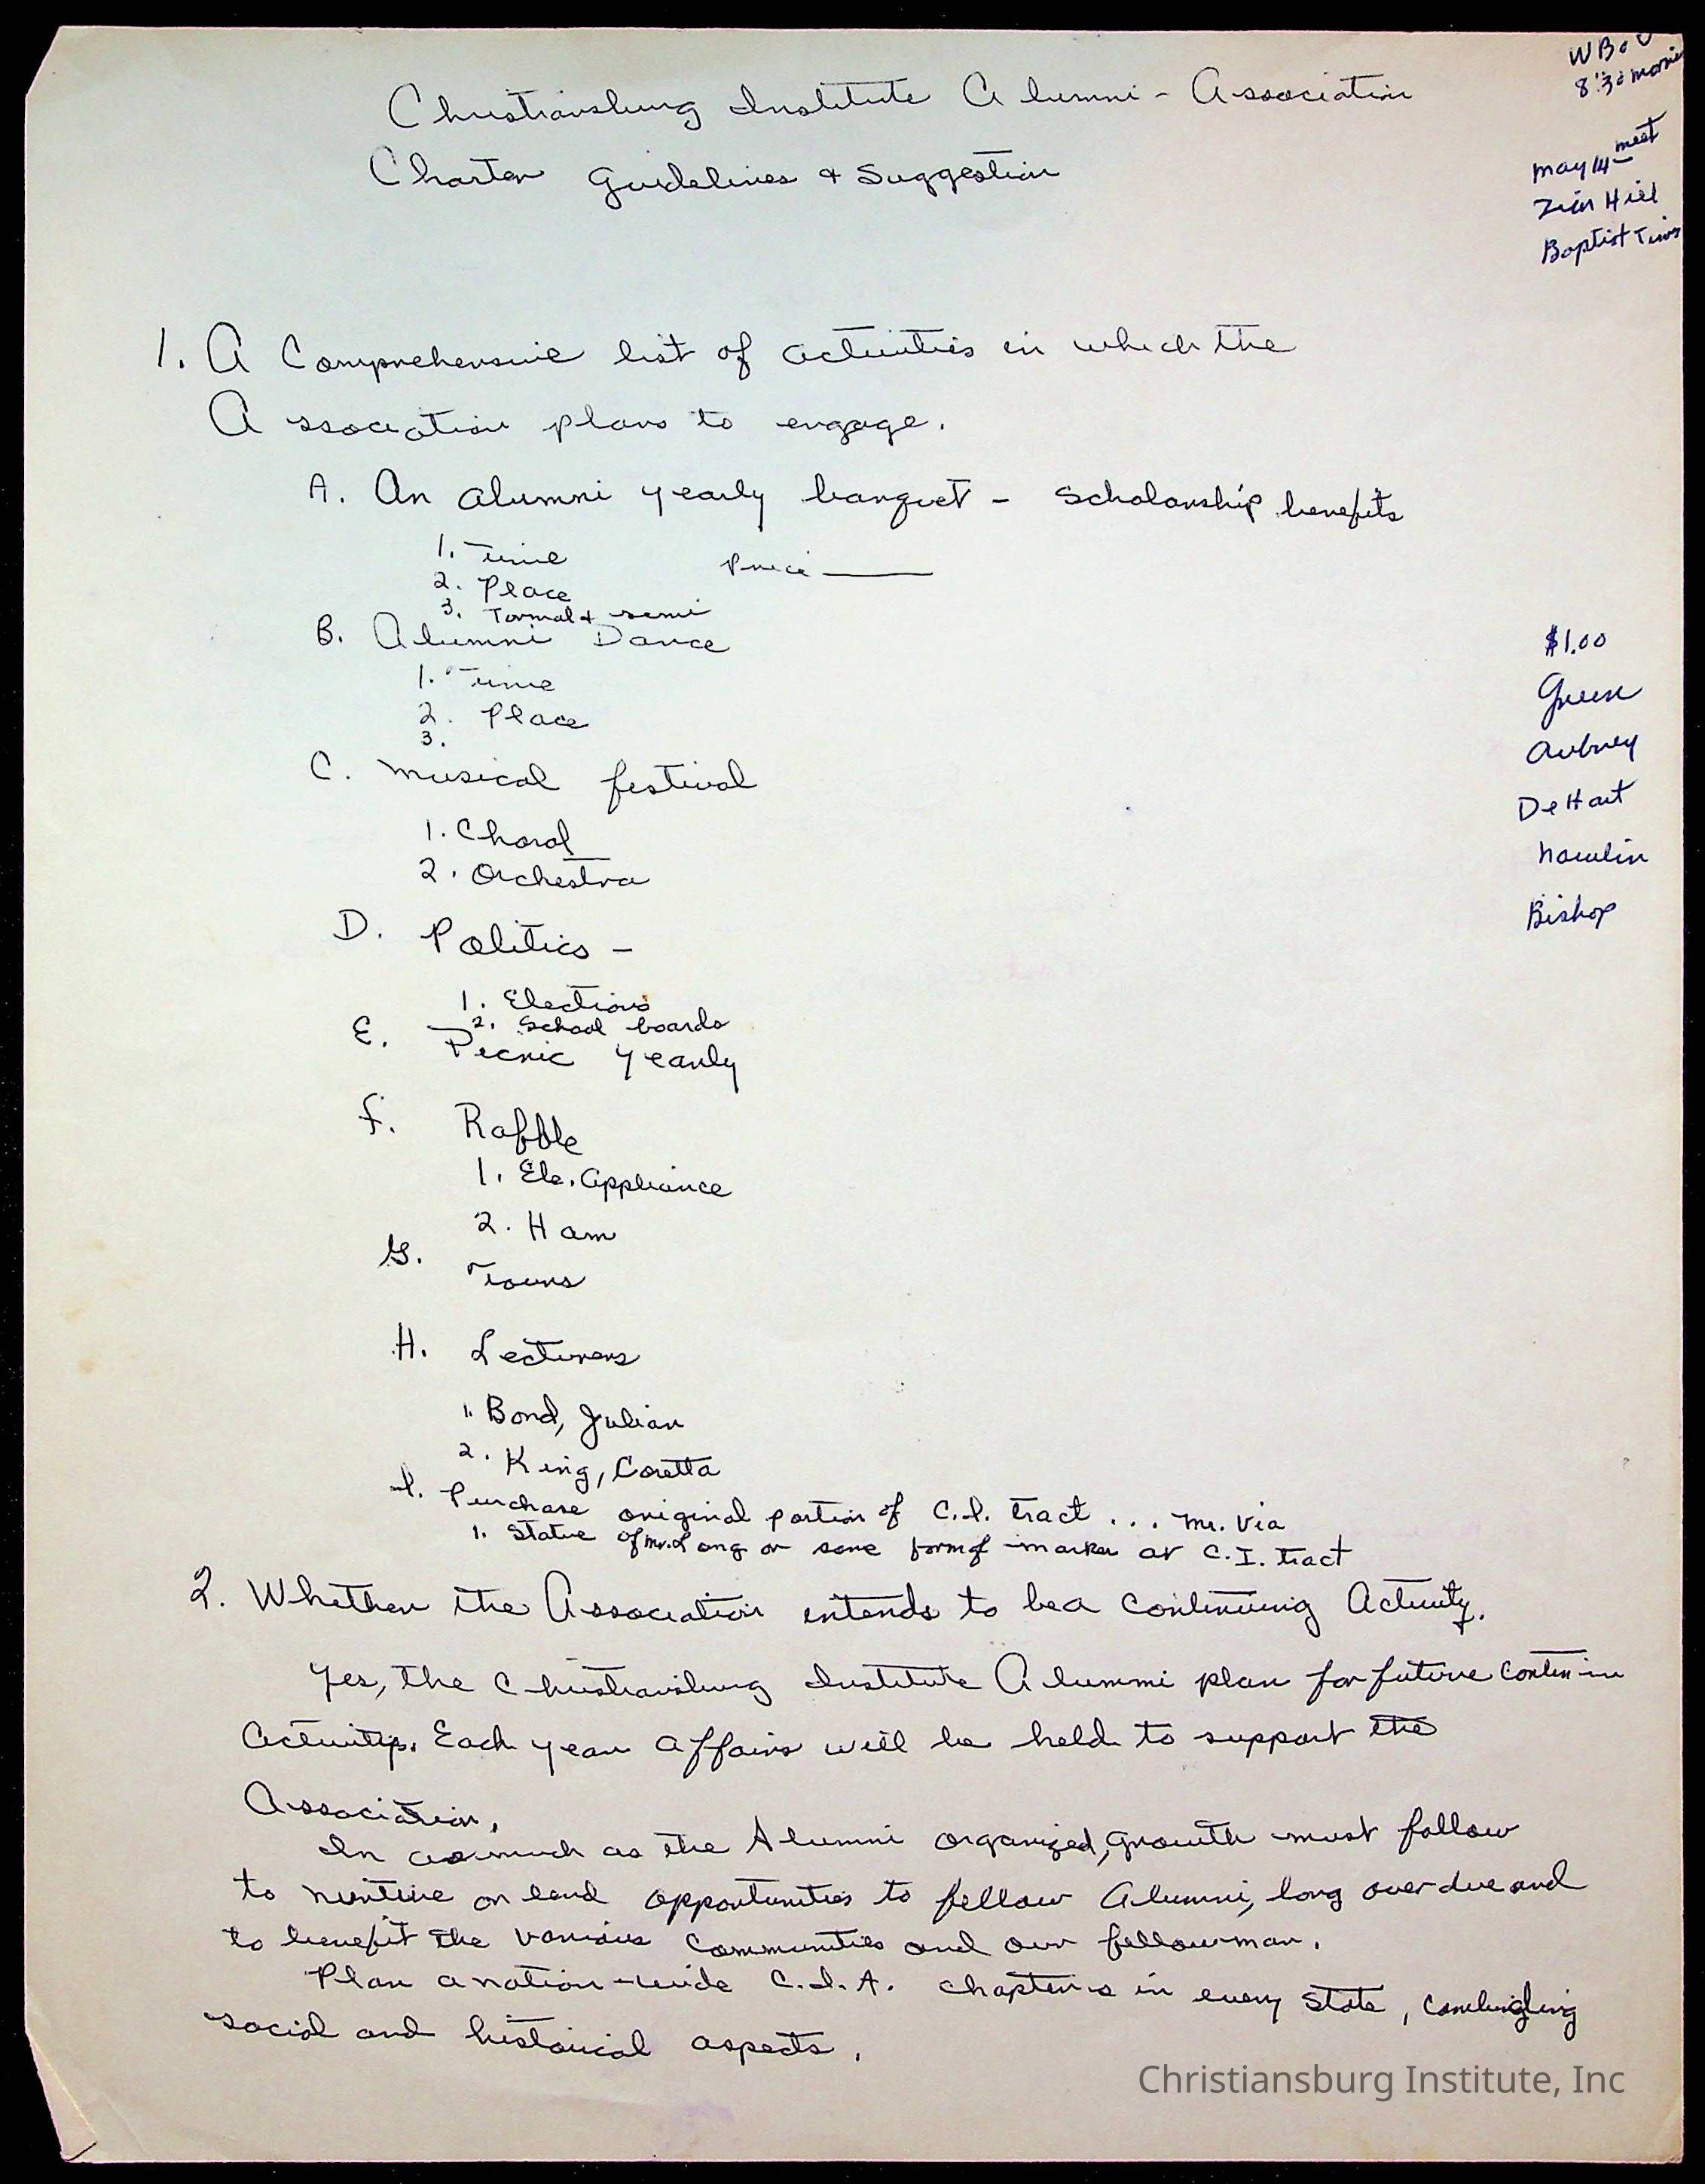 Christiansburg Institute Alumni - Association
Charter Guidelines & Suggestion
8:30
May 14 - meet
Zion Hill
Baptist
1. A Comprehensive list of activities in which the
Association plans to engage.
A. An alumni yearly banquet - Scholarship benefits
1. Time
Price ____
2. Place
3. Formal & semi
B. Alumni Dance
1. Time
2. Place
3.
C. Musical festival
1. Choral
2. Orchestra
D. Politics -
1. Elections
2. School boards
E. Picnic yearly
F. Raffle
1. Ele. Appliance
2. Ham
G. Tours
H. Lecturers
1. Bond, Julian
2. King, Coretta
I. Purchase original portion of C.I. tract ... Mr. Via
1. Statue of Mr. Long or some form of marker at C.I. tract
$1.00
Green
Aubrey
DeHart
Nowlin
Bishop
2. Whether the Association intends to be a Continuing Activity.
Yes, the Christiansburg Institute Alummi plan for future
Activity. Each year affairs will be held to support the
Association.
In as much as the Alumni organized, growth must follow
to or lend opportunities to fellow Alumni, long over due and
to benefit the various Communities and our fellowman.
Plan a nation-wide C.I.A. chapters in every State,
social and historical aspects.
Christiansburg Institute, Inc